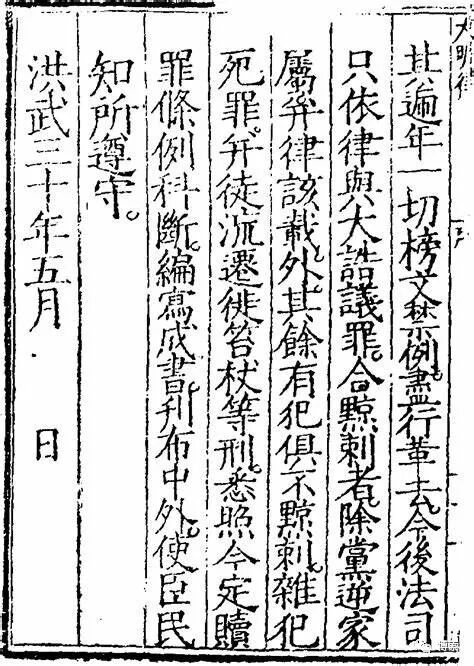 大明律
其遍年一切榜文禁例。盡行革去。今後法司
只依律與大誥議罪。合黥刺者。除黨逆家
屬并律該載外。其餘有犯俱不黥刺。雜犯
死罪。并徒流遷徙笞杖等刑。悉照今定贖
罪條例科斷。編寫成書。刊布中外。使臣民
知所遵守。
洪武三十年五月 日